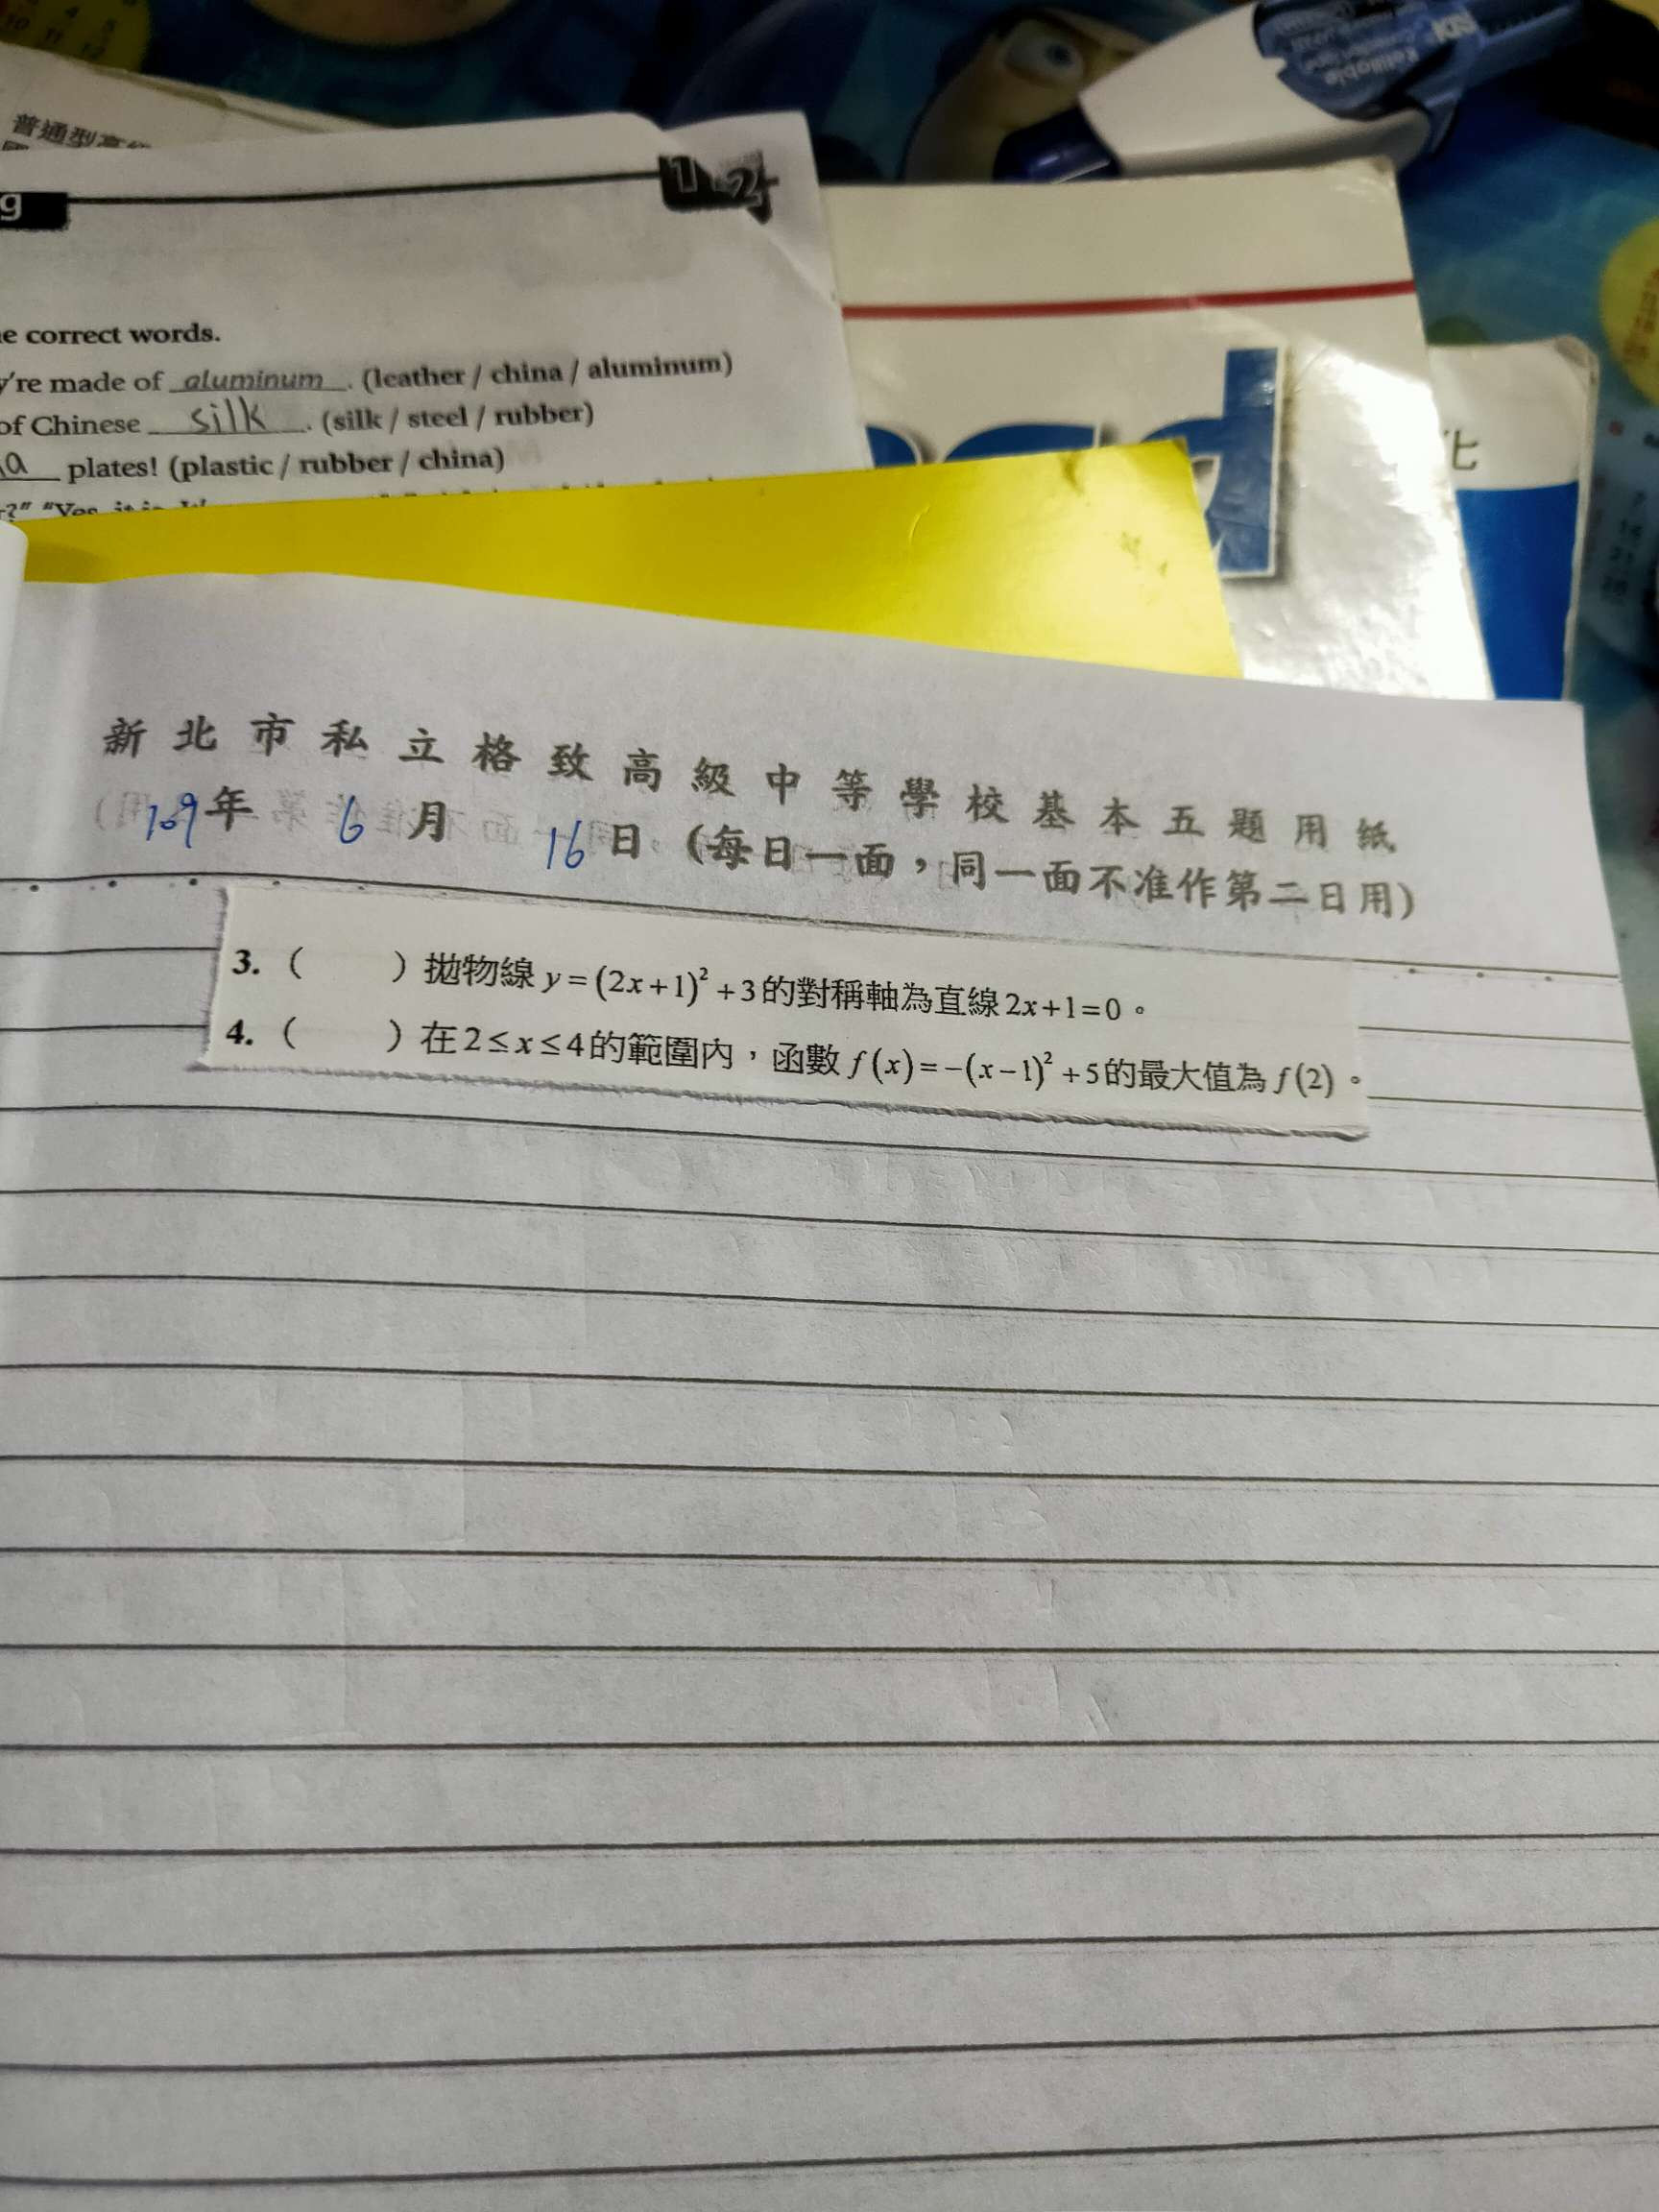 普通型高級
g
1-2
e correct words.
y're made of aluminum . (leather / china / aluminum)
of Chinese silk . (silk / steel / rubber)
a plates! (plastic / rubber / china)
?" "Yes, it is.
化
新北市私立格致高級中等學校基本五題用紙
109年 6月 16日 (每日一面,同一面不准作第二日用)
3. ( ) 拋物線 y=(2x+1)²+3的對稱軸為直線2x+1=0。
4. ( ) 在2≤x≤4的範圍內,函數 f(x)=-(x-1)²+5的最大值為 f(2)。